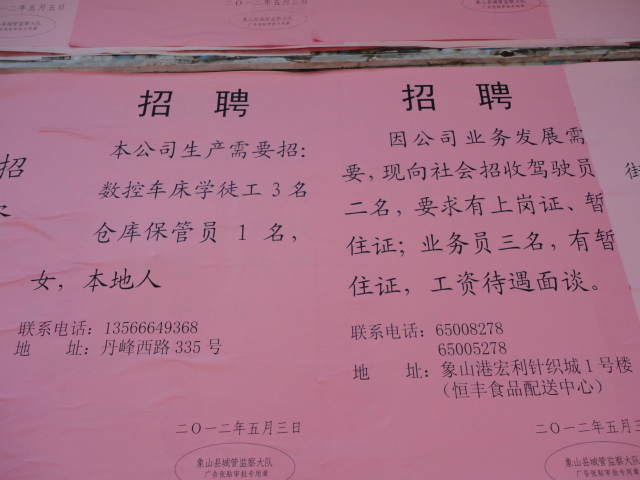 二〇一二年五月五日
象山县城管监察大队
二〇一二年五月三日
象山县城管监察大队
广告张贴审批专用章
招
招 聘
本公司生产需要招：
数控车床学徒工 3 名
仓库保管员 1 名，
女，本地人
联系电话：13566649368
地 址：丹峰西路 335 号
二〇一二年五月三日
象山县城管监察大队
广告张贴审批专用章
招 聘
因公司业务发展需
要，现向社会招收驾驶员
二名，要求有上岗证、暂
住证；业务员三名，有暂
住证，工资待遇面谈。
联系电话：65008278
65005278
地 址：象山港宏利针织城 1 号楼
（恒丰食品配送中心）
二〇一二年五月三
象山县城管监察大队
广告张贴审批专用章
街